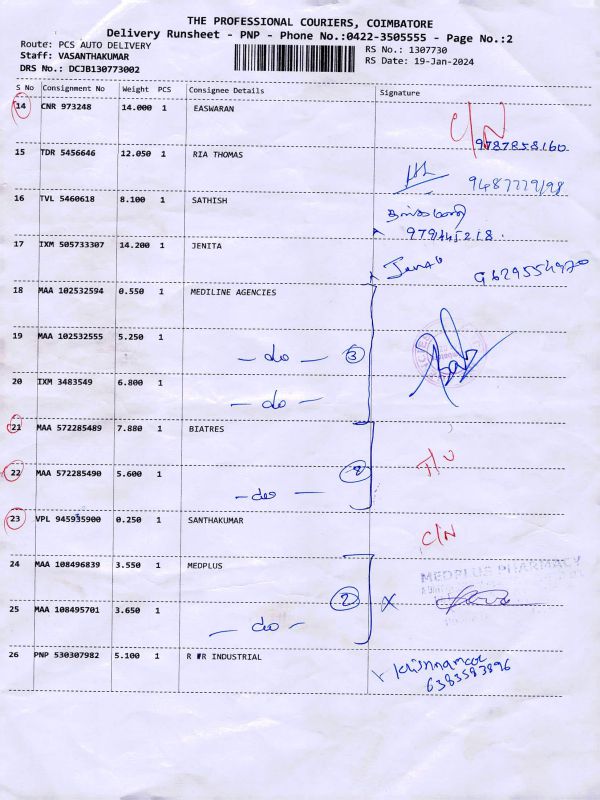 THE PROFESSIONAL COURIERS, COIMBATORE
Delivery Runsheet - PNP - Phone No.:0422-3505555 - Page No.:2
Route: PCS AUTO DELIVERY
RS No.: 1307730
Staff: VASANTHAKUMAR
RS Date: 19-Jan-2024
DRS No.: DCJB130773002
S No Consignment No Weight PCS Consignee Details Signature
14 CNR 973248 14.000 1 EASWARAN C/N
9787858160
15 TDR 5456646 12.050 1 RIA THOMAS
9487779198
16 TVL 5460618 8.100 1 SATHISH
17 IXM 505733307 14.200 1 JENITA
9629554970
18 MAA 102532594 0.550 1 MEDILINE AGENCIES
19 MAA 102532555 5.250 1 - do - 3
20 IXM 3483549 6.800 1 - do -
21 MAA 572285489 7.880 1 BIATRES
22 MAA 572285490 5.600 1 - do - 2
23 VPL 945935900 0.250 1 SANTHAKUMAR C/N
24 MAA 108496839 3.550 1 MEDPLUS
MEDPLUS PHARMACY
25 MAA 108495701 3.650 1 - do - 2 X
26 PNP 530307982 5.100 1 R R INDUSTRIAL
6383583896